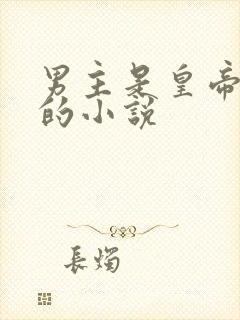 男主是皇帝
的小說
長燭